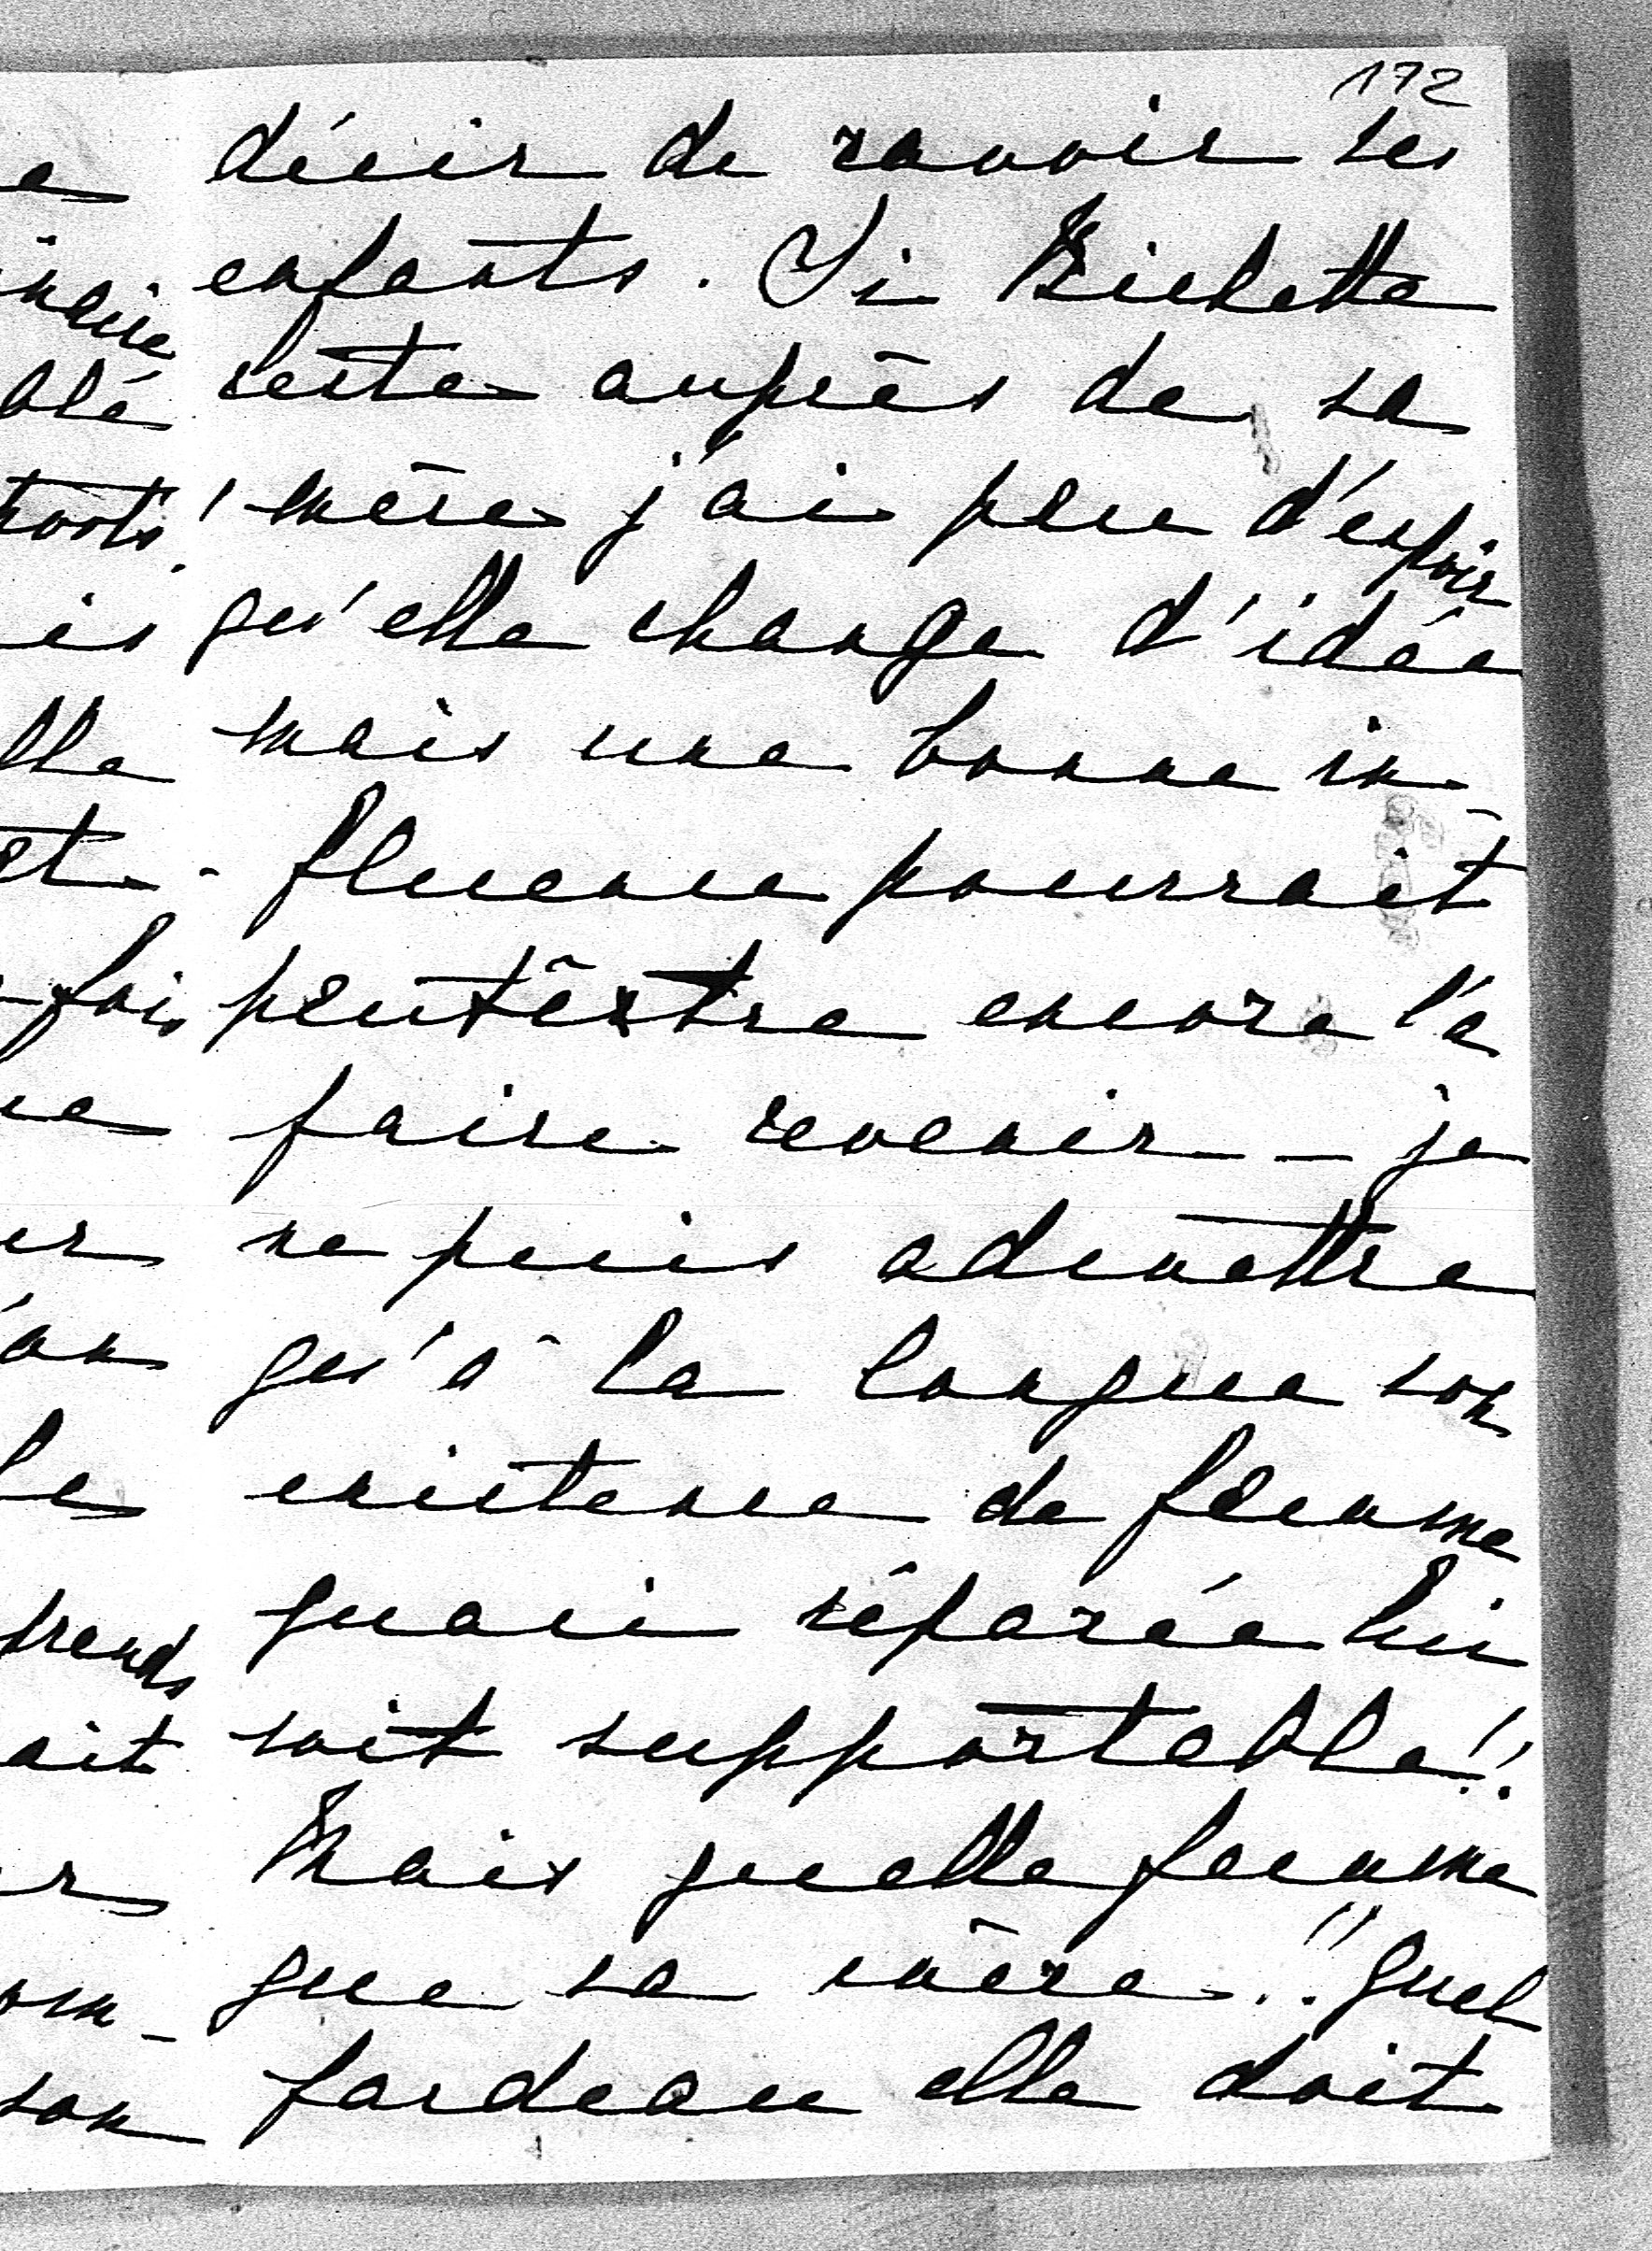 172
désir de ravoir ses
enfants. Si Bichette
reste auprès de sa
mère j'ai peu d'espoir
qu'elle change d'idée
mais une bonne in-
fluence pourrait
peutêtre encore l'a
faire revenir – je
ne puis admettre
qu'à la longue son
existence de femme
quasi séparée lui
soit supportable!!
Mais quelle femme
que sa mère!! Quel
fardeau elle doit